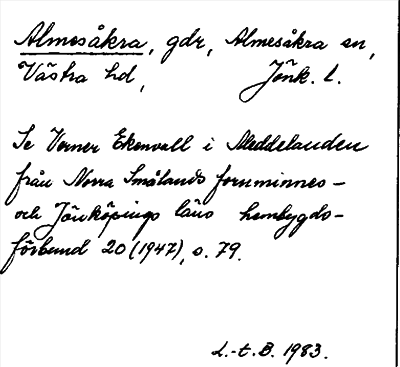 Almesåkra, gdr, Almesåkra sn,
Västra hd, Jönk. l.
Se Verner Ekenvall i Meddelanden
från Norra Smålands fornminnes-
och Jönköpings läns hembygds-
förbund 20 (1947), s. 79.
L.-t. B. 1983.